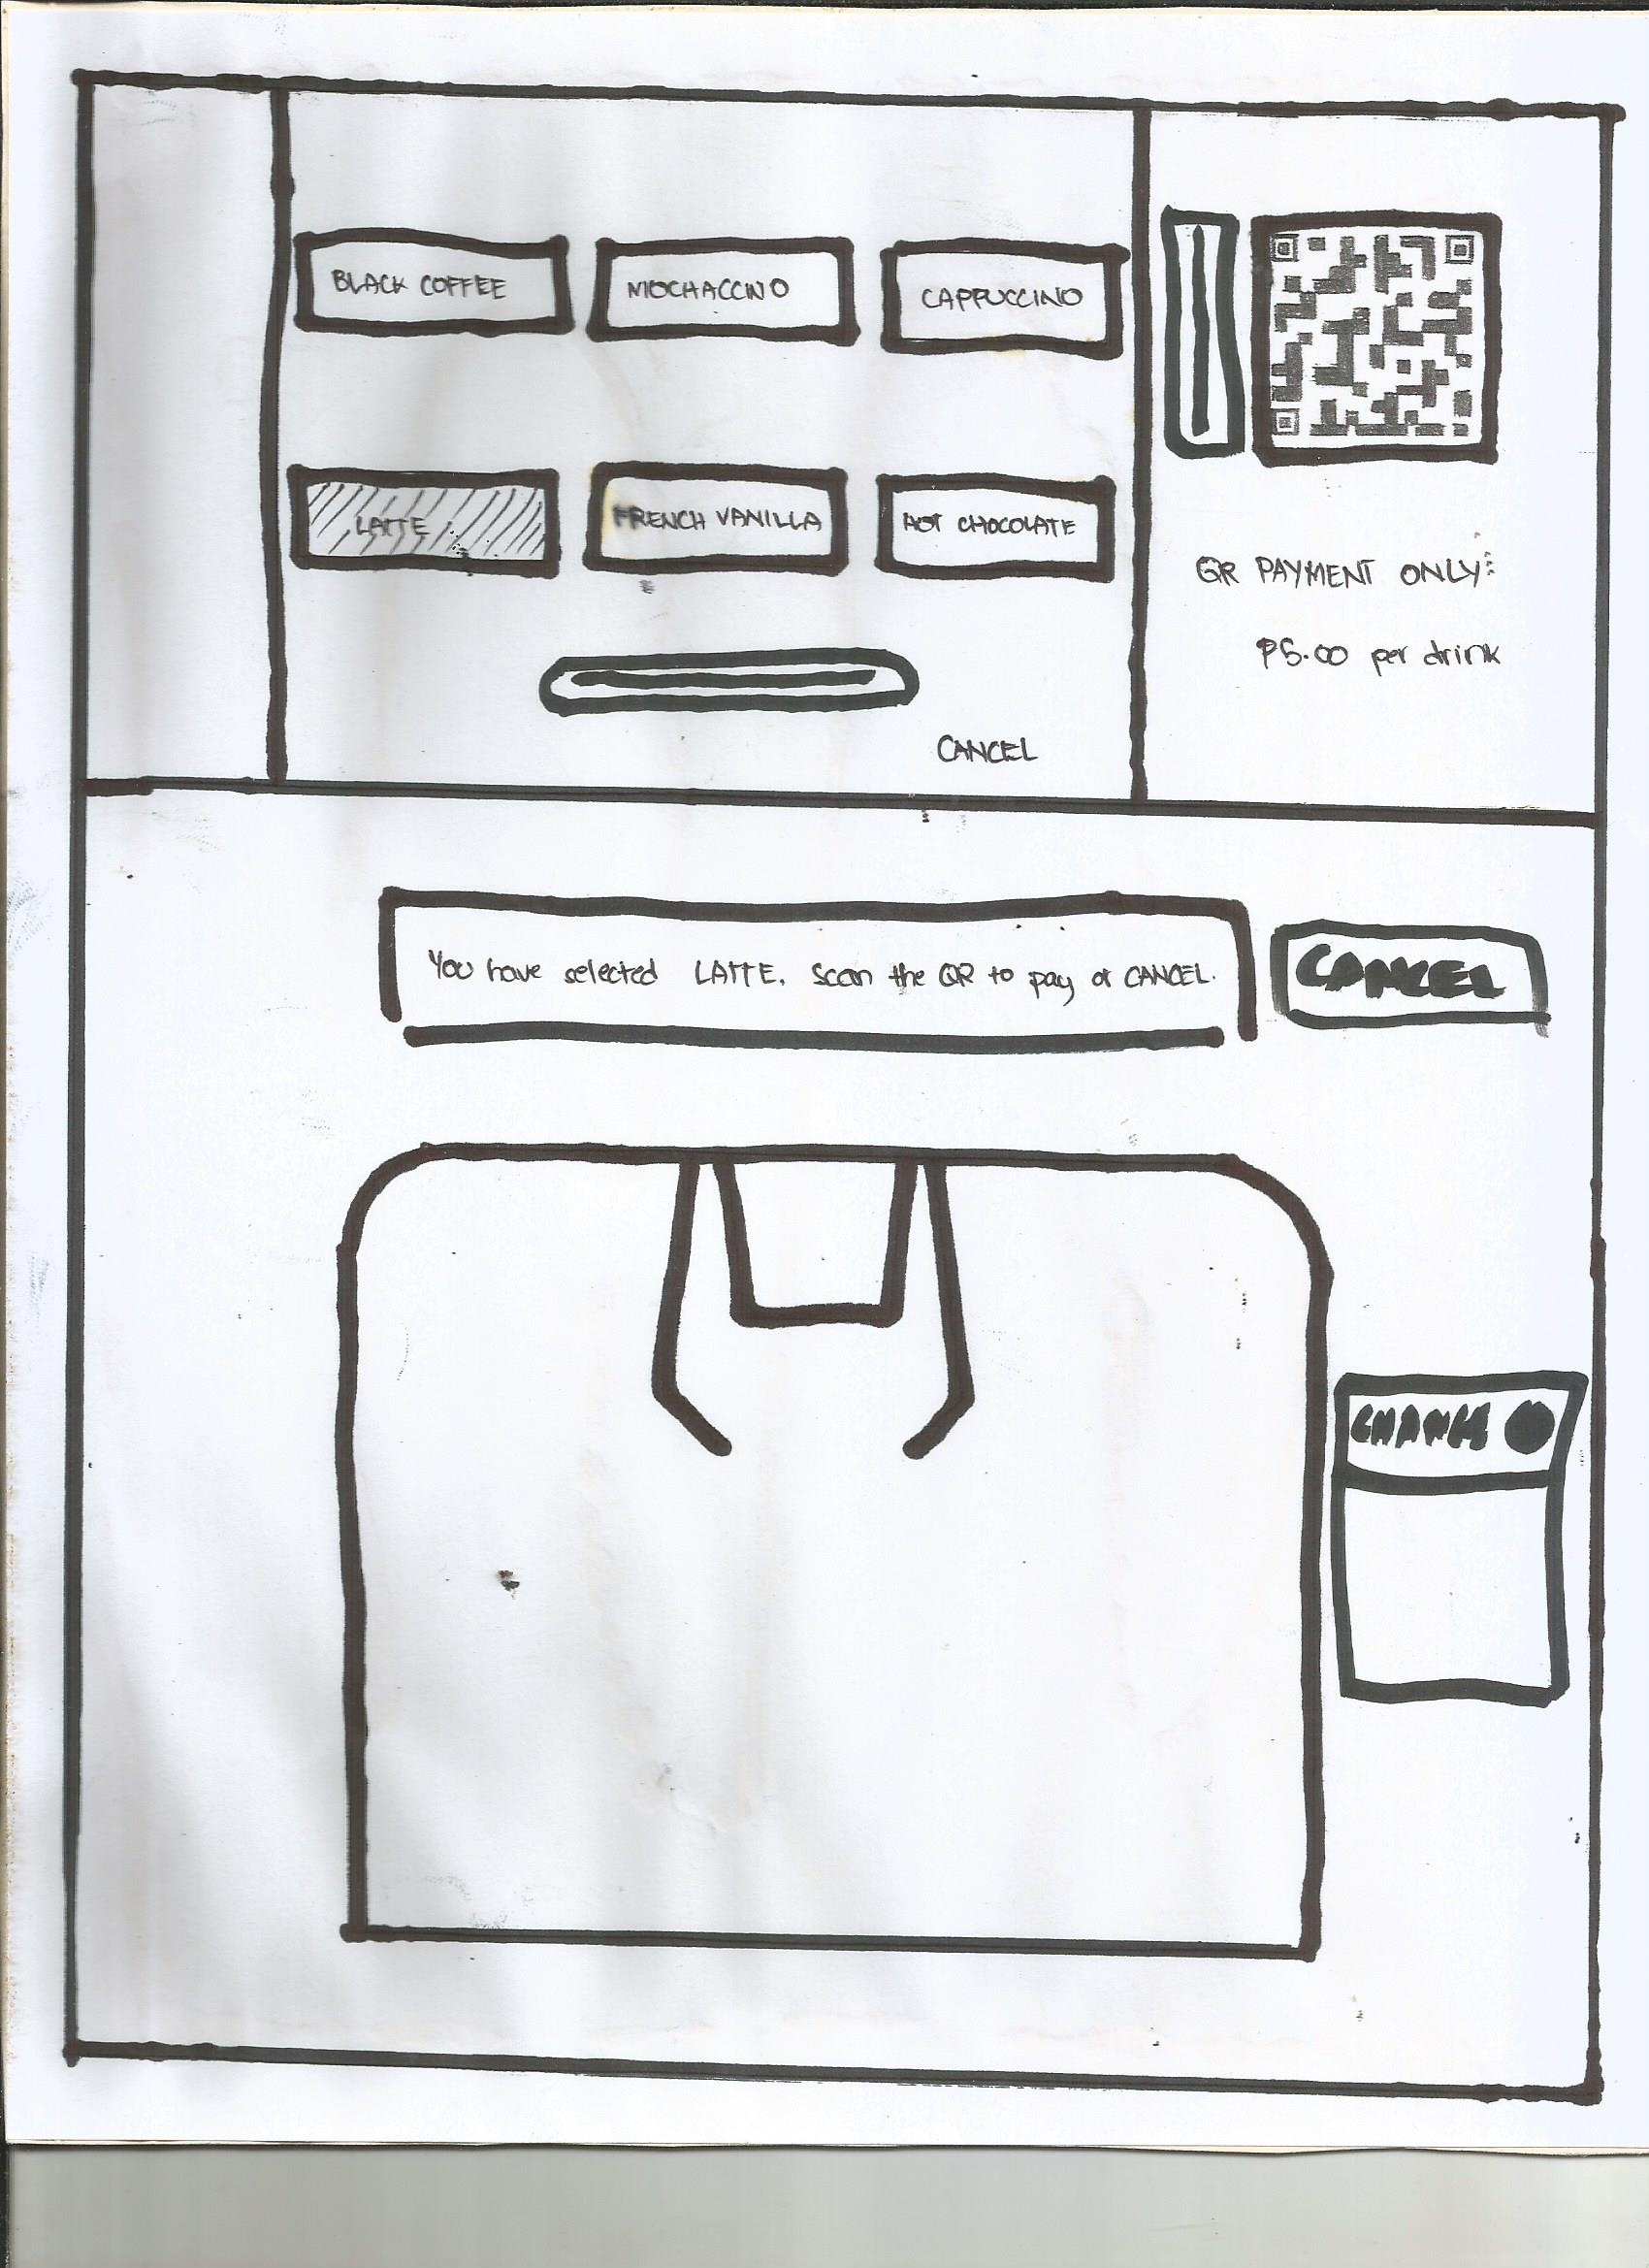 BLACK COFFEE
MOCHACCINO
CAPPUCCINO
LATTE
FRENCH VANILLA
HOT CHOCOLATE
QR PAYMENT ONLY:
₱5.00 per drink
CANCEL
You have selected LATTE. Scan the QR to pay or CANCEL.
CANCEL
CHANGE